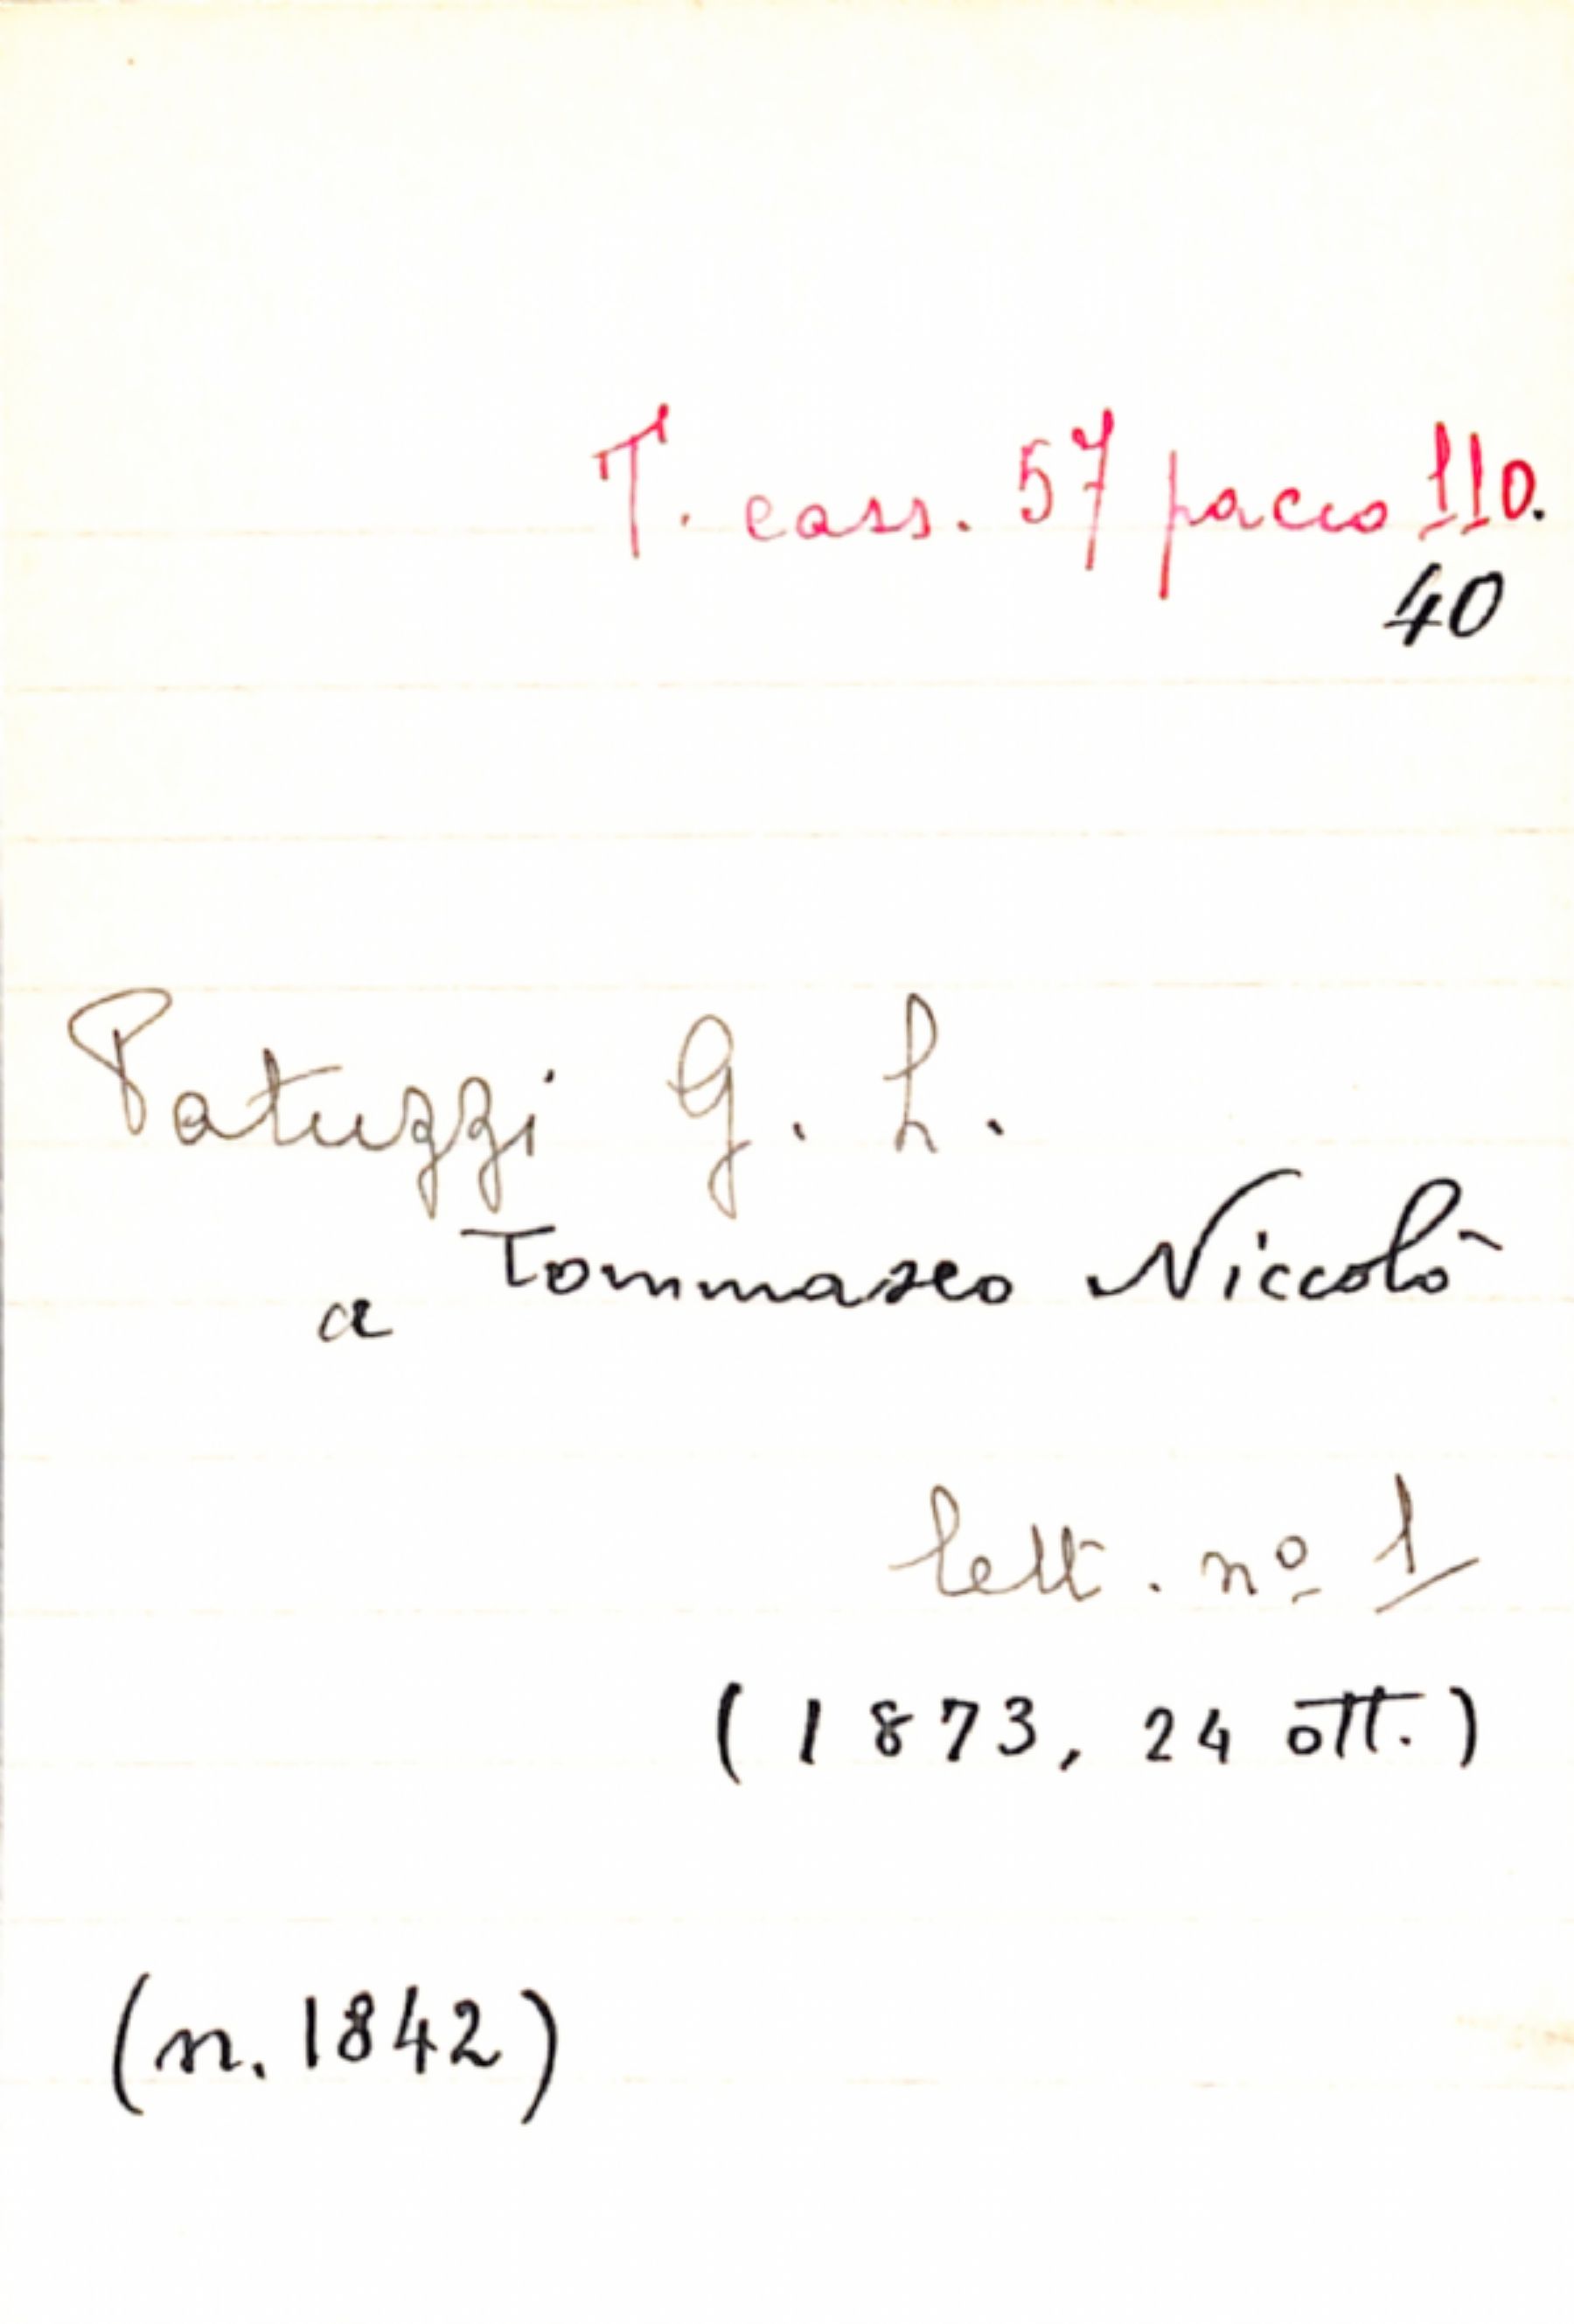 T. cass. 57 pacco 110.
40
Patuzzi G. L.
a Tommaseo Niccolò
lett. nº 1
(1873, 24 ott.)
(n. 1842)